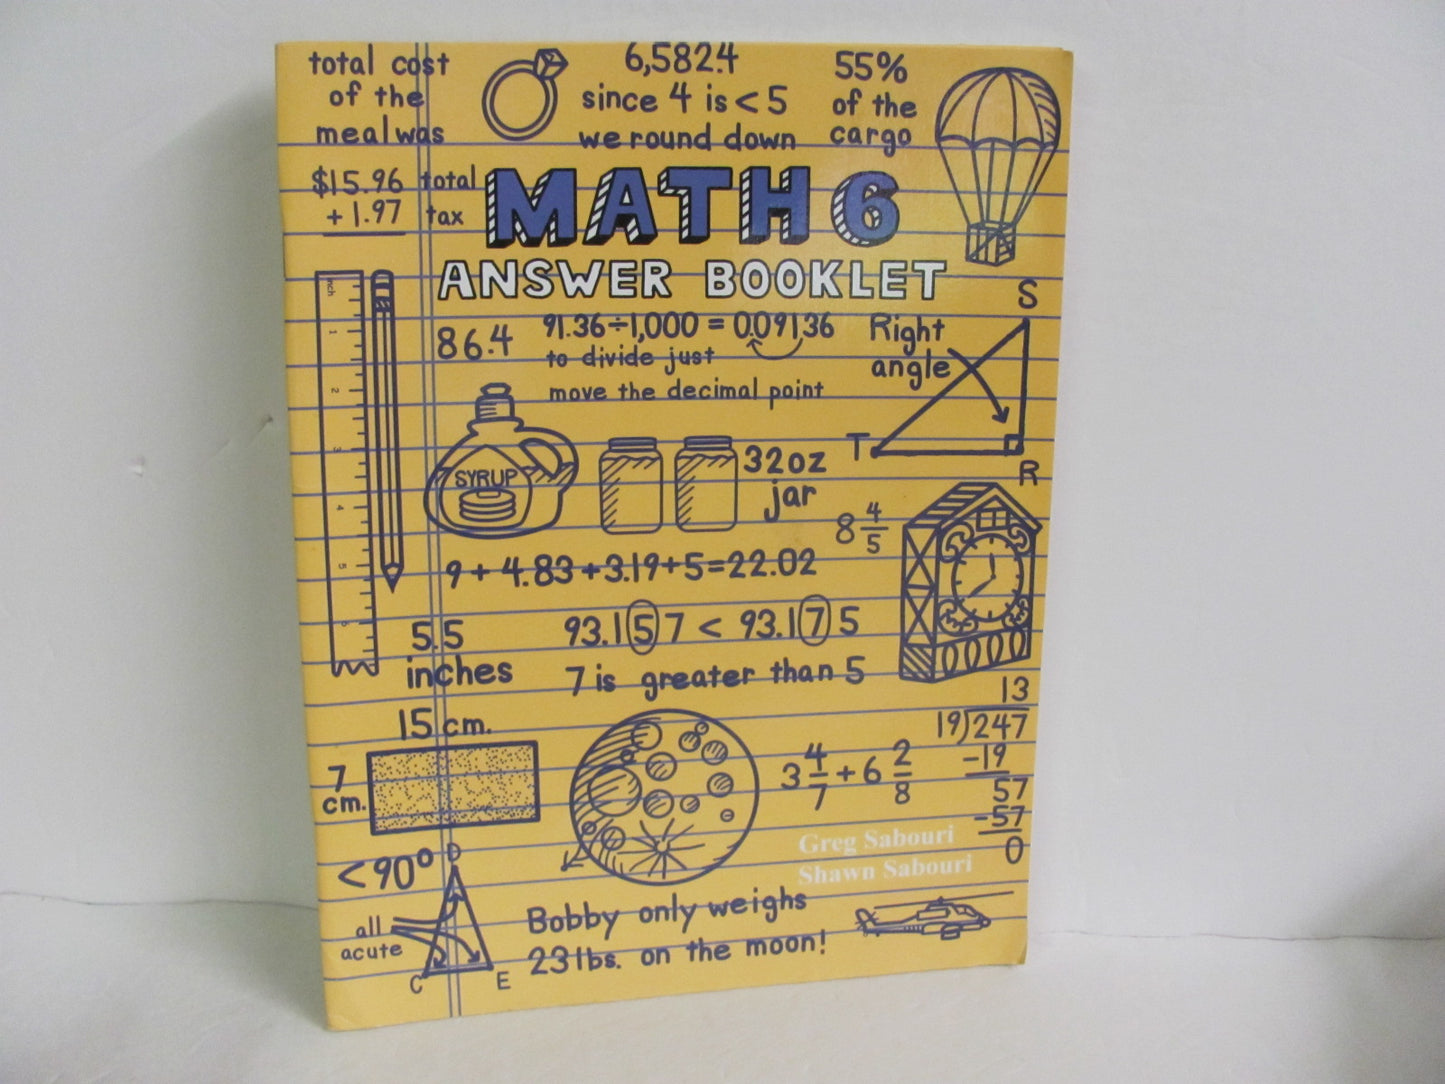 total cost
of the
meal was
$15.96 total
+ 1.97 tax
6,582.4
since 4 is < 5
we round down
55%
of the
cargo
MATH 6
ANSWER BOOKLET
inch
1
2
3
4
5
6
86.4
91.36÷1,000 = 0.091,36
to divide just
move the decimal point
Right
angle
S
T
R
SYRUP
32oz
jar
8 4/5
9 + 4.83 + 3.19 + 5 = 22.02
5.5
inches
93.157 < 93.175
7 is greater than 5
13
19)247
-19
57
-57
0
15 cm.
7
cm.
3 4/7 + 6 2/8
Greg Sabouri
Shawn Sabouri
<90°
D
all
acute
C
E
Bobby only weighs
23 lbs. on the moon!